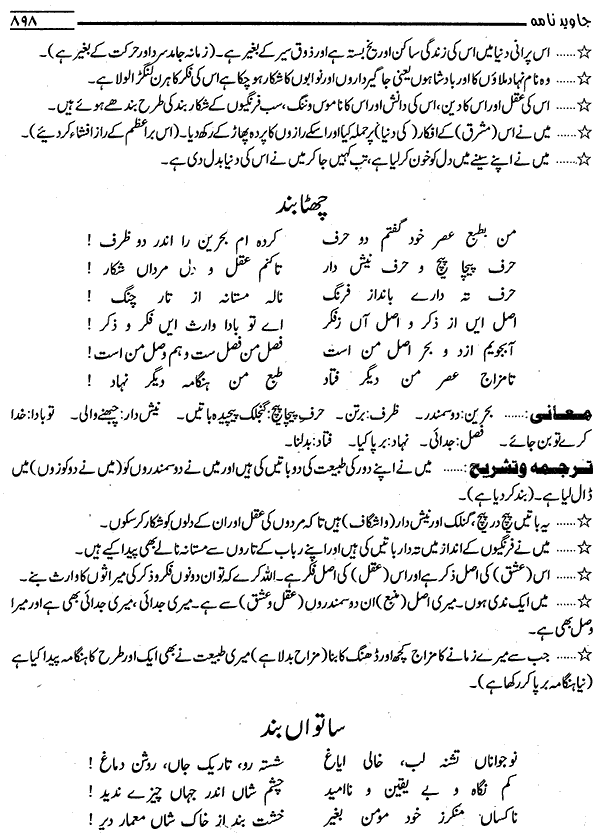 جاوید نامہ ۸۹۸
☆...... اس پرانی دنیا میں اس کی زندگی ساکن اور یخ بستہ ہے اور ذوق سیر کے بغیر ہے۔ (زمانہ جامد سرد اور حرکت کے بغیر ہے)۔
☆...... وہ نام نہاد ملاؤں کا اور بادشاہوں یعنی جاگیرداروں اور نوابوں کا شکار ہو چکا ہے اس کی فکر کا ہرن لنگڑا لولا ہے۔
☆...... اس کی عقل اور اس کا دین، اس کی دانش اور اس کا ناموس و ننگ، سب فرنگیوں کے شکار بند کی طرح بندھے ہوئے ہیں۔
☆...... میں نے اس (مشرق) کے افکار (کی دنیا) پر حملہ کیا اور اسکے رازوں کا پردہ پھاڑ کے رکھ دیا۔ (اس براعظم کے راز افشاء کر دئیے)۔
☆...... میں نے اپنے سینے میں دل کو خون کر لیا ہے، تب کہیں جا کر میں نے اس کی دنیا بدل دی ہے۔
چھٹا بند
من بطبع عصر خود گفتم دو حرف کردہ ام بحرین را اندر دو ظرف !
حرف پیچا پیچ و حرف نیش دار تاکنم عقل و دل مرداں شکار !
حرف تہ دارے بانداز فرنگ نالہ مستانہ از تار چنگ !
اصل ایں از ذکر و اصل آں ز فکر اے تو بادا وارث ایں فکر و ذکر !
آبجویم از دو بحر اصل من است فصل من فصل ست و ہم وصل من است !
تا مزاج عصر من دیگر فتاد طبع من ہنگامہ دیگر نہاد !
معانی:...... بحرین: دو سمندر۔ ظرف: برتن۔ حرف پیچا پیچ: گنجلک پیچیدہ باتیں۔ نیش دار: چبھنے والی۔ تو بادا: خدا
کرے تو بن جائے۔ فصل: جدائی۔ نہاد: برپا کیا۔ فتاد: بدلنا۔
ترجمہ وتشریح:...... میں نے اپنے دور کی طبیعت کی دو باتیں کی ہیں اور میں نے دو سمندروں کو (میں نے دو کوزوں) میں
ڈال لیا ہے۔ (بند کر دیا ہے)۔
☆...... یہ باتیں پیچ در پیچ، گنلک اور نیش دار (واشگاف) ہیں تا کہ مردوں کی عقل اور ان کے دلوں کو شکار کر سکوں۔
☆...... میں نے فرنگیوں کے انداز میں تہ دار باتیں کی ہیں اور اپنے رباب کے تاروں سے مستانہ نالے بھی پیدا کیے ہیں۔
☆...... اس (عشق) کی اصل ذکر ہے اور اس (عقل) کی اصل فکر ہے۔ اللہ کرے کہ تو ان دونوں فکر و ذکر کی میراثوں کا وارث بنے۔
☆...... میں ایک ندی ہوں۔ میری اصل (منبع) ان دو سمندروں (عقل و عشق) سے ہے۔ میری جدائی، میری جدائی بھی ہے اور میرا
وصل بھی ہے۔
☆...... جب سے میرے زمانے کا مزاج کچھ اور ڈھنگ کا بنا (مزاج بدلا ہے) میری طبیعت نے بھی ایک اور طرح کا ہنگامہ پیدا کیا ہے
(نیا ہنگامہ برپا کر رکھا ہے)۔
ساتواں بند
نوجواناں تشنہ لب، خالی ایاغ شستہ رو، تاریک جاں، روشن دماغ !
کم نگاہ و بے یقین و ناامید چشم شاں اندر جہاں چیزے ندید !
ناکساں منکر ز خود مومن بغیر خشت بند از خاک شاں معمار دیر !